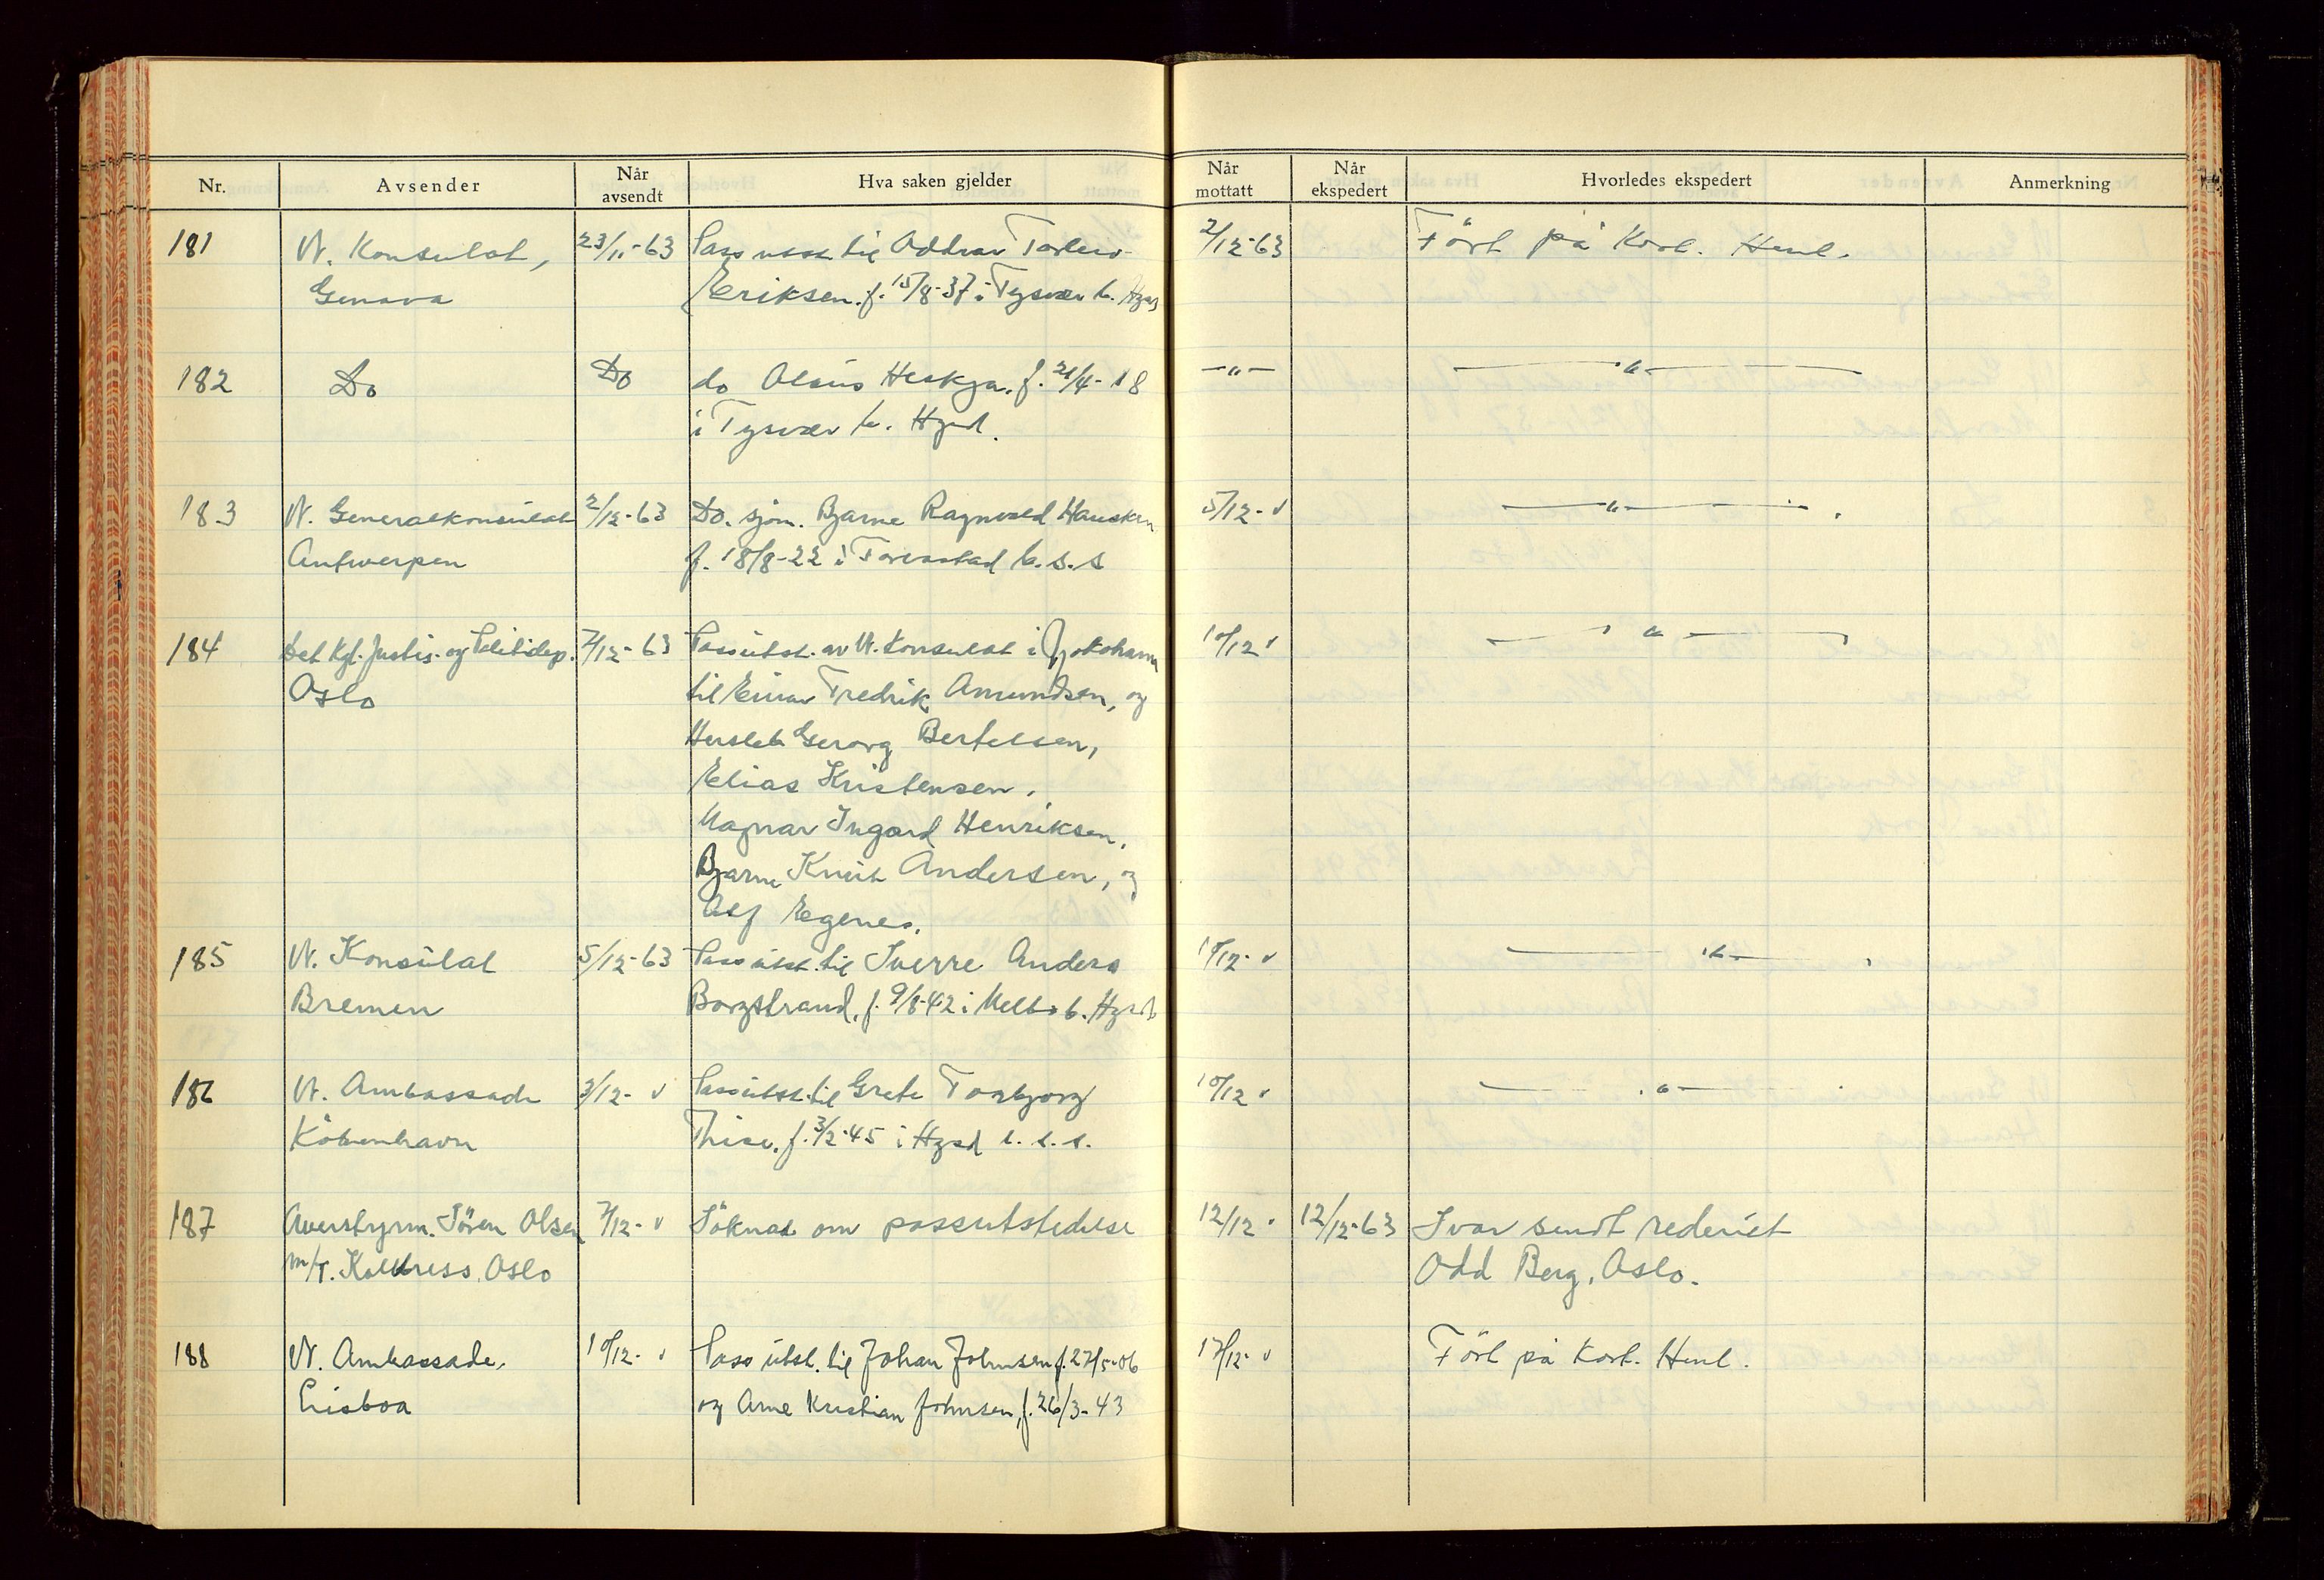 Nr. Avsender Når avsendt Hva saken gjelder Når mottatt Når ekspedert Hvorledes ekspedert Anmerkning
181 N. Konsulat, 23/11-63 Pass utst. til Oddvar 2/12-63 Ført på Kort. Henl.
Genova Eriksen. f. 15/8-37 i Tysvær b.
182 Do Do do f. 21/4-18 —"— —"—
i Tysvær b. Hgsd.
183 N. Generalkonsulat 2/12-63 Do. sjøm. Bjarne Ragnvald Hausken 5/12- " —"—
Antwerpen f. 18/8-22 i Torvastad b.s.s
184 Det Kgl. Justis- og Politidep. 7/12-63 Pass utst. av N. Konsulat i Yokohama 10/12 " —"—
Oslo til Einar Fredrik Amundsen, og
Hersleb Georg Bertelsen,
Elias Kristensen,
Magnar Ingard Henriksen,
Bjarne Knut Andersen, og
Alf Egenes.
185 N. Konsulat 5/12-63 Pass utst. til Sverre Anders 10/12- " —"—
Bremen Borgstrand, f. 9/8-42 i Melbo b. Hgsd
186 N. Ambassade 3/12- " Pass utst. til Grete Torbjørg 10/12 " —"—
København f. 3/2-45 i Hgsd b.s.s.
187 Overstyrm. Sören Olsen 7/12- " Søknad om passutstedelse 12/12 " 12/12-63 Svar sendt rederiet
m/T. Oslo Odd Berg, Oslo.
188 N. Ambassade, 10/12- " Pass utst. til Johan Johnsen f. 27/5-06 17/12- " Ført på Kort. Henl.
Lisboa og Arne Kristian Johnsen, f. 26/3-43